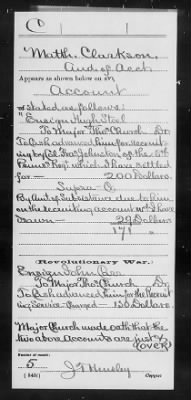 C
Matth. Clarkson.
Aud. of Accts
Appears as shown below on an
Account
stated as follows:
"Ensign Hugh Steel
To Major Thos Church Dr.
To Cash advanced him for recruit-
ing by Col. Fra. Johnston of the 5th
Penna Regt which I have settled
for — 200 Dollars.
Supra Cr.
By Amt of Subsistence due to him
on the recruiting account wh I have
drawn — 29 Dollars
171 "
Revolutionary War.
Ensign John
To Major Thos Church Dr.
To Cash advanced him for the Recruit-
ing Service — 130 Dollars.
Major Church made oath that the
two above Accounts are just &
(OVER)
Number of record:
5
J F
Copyist.